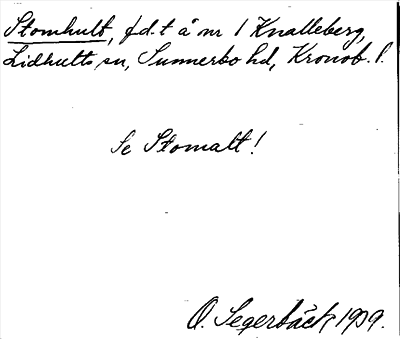 Stomhult, f.d. t å nr 1 Knalleberg,
Lidhults sn, Sunnerbo hd, Kronob. l.
Se Stomalt!
O. Segerbäck 1909.